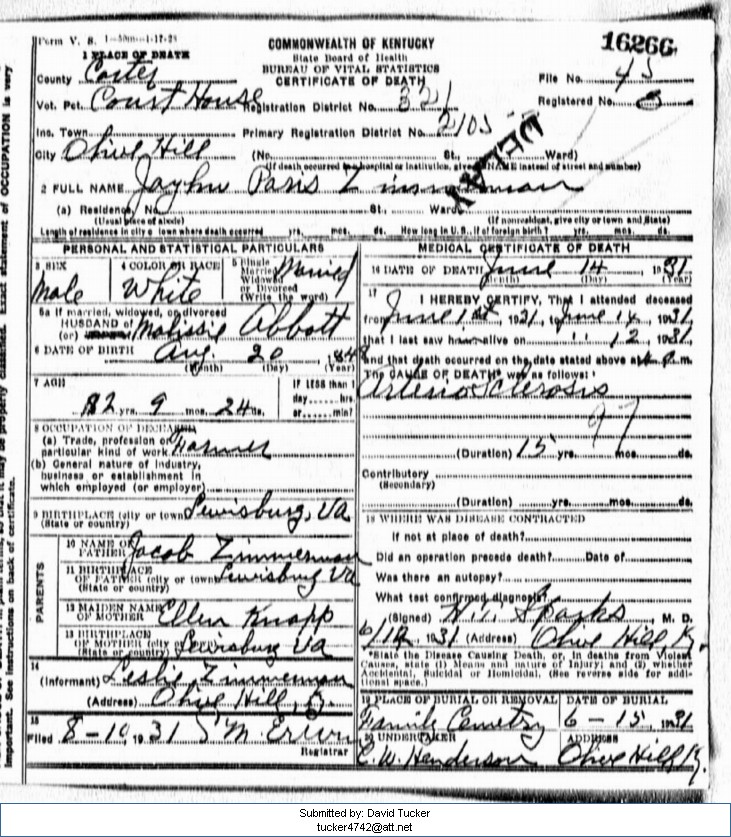 Form V. S. 1-50m-1-17-28
16266
COMMONWEALTH OF KENTUCKY
State Board of Health
BUREAU OF VITAL STATISTICS
CERTIFICATE OF DEATH
1 PLACE OF DEATH
County Carter
File No. 45
Vot. Pct. Court House
Registration District No. 321
Registered No.
Inc. Town
Primary Registration District No. 2105
DELAY
City Olive Hill (No. St., Ward)
(If death occurred in a hospital or institution, give NAME instead of street and number)
2 FULL NAME Jayhu Paris Zimmerman
(a) Residence, No. St., Ward.
(Usual place of abode) (If nonresident, give city or town and State)
Length of residence in city or town where death occurred yrs. mos. ds. How long in U.S., if of foreign birth? yrs. mos. ds.
PERSONAL AND STATISTICAL PARTICULARS
3 SEX Male
4 COLOR OR RACE White
5 Single Married Widowed or Divorced (Write the word) Married
5a If married, widowed, or divorced
HUSBAND of
(or) Malissie Abbott
6 DATE OF BIRTH Aug. 20, 1848
(Month) (Day) (Year)
7 AGE
82 yrs. 9 mos. 24 ds.
IF LESS than 1 day hrs. or min?
8 OCCUPATION OF DECEASED
(a) Trade, profession or particular kind of work Farmer
(b) General nature of industry, business or establishment in which employed (or employer)
9 BIRTHPLACE (city or town) Lewisburg, Va
(State or country)
PARENTS
10 NAME OF FATHER Jacob Zimmerman
11 BIRTHPLACE OF FATHER (city or town) Lewisburg Va
(State or country)
12 MAIDEN NAME OF MOTHER Ellen Knapp
13 BIRTHPLACE OF MOTHER (city or town) Lewisburg Va
(State or country)
14
(Informant) Leslie Zimmerman
(Address) Olive Hill, Ky.
15
Filed 8-10, 1931 S M Erwin
Registrar
MEDICAL CERTIFICATE OF DEATH
16 DATE OF DEATH June 14, 1931
(Month) (Day) (Year)
17 I HEREBY CERTIFY, That I attended deceased
from June 1st, 1931, to June 14, 1931
that I last saw him alive on " 12, 1931
and that death occurred on the date stated above at 4 P.m.
The CAUSE OF DEATH* was as follows:
Arterio Sclerosis
97
(Duration) 15 yrs. mos. ds.
Contributory
(Secondary)
(Duration) yrs. mos. ds.
18 WHERE WAS DISEASE CONTRACTED
If not at place of death?
Did an operation precede death? Date of
Was there an autopsy?
What test confirmed diagnosis?
(Signed) H. T. Sparks, M. D.
1931 (Address) Olive Hill Ky.
*State the Disease Causing Death, or, in deaths from Violent
Causes, state (1) Means and nature of Injury; and (2) whether
Accidental, Suicidal or Homicidal. (See reverse side for addi-
tional space.)
19 PLACE OF BURIAL OR REMOVAL Family Cemetry
DATE OF BURIAL 6-15, 1931
20 UNDERTAKER C. W. Henderson
ADDRESS Olive Hill Ky.
may be properly classified. Exact statement of OCCUPATION is very
important. See instructions on back of certificate.
Submitted by: David Tucker
tucker4742@att.net